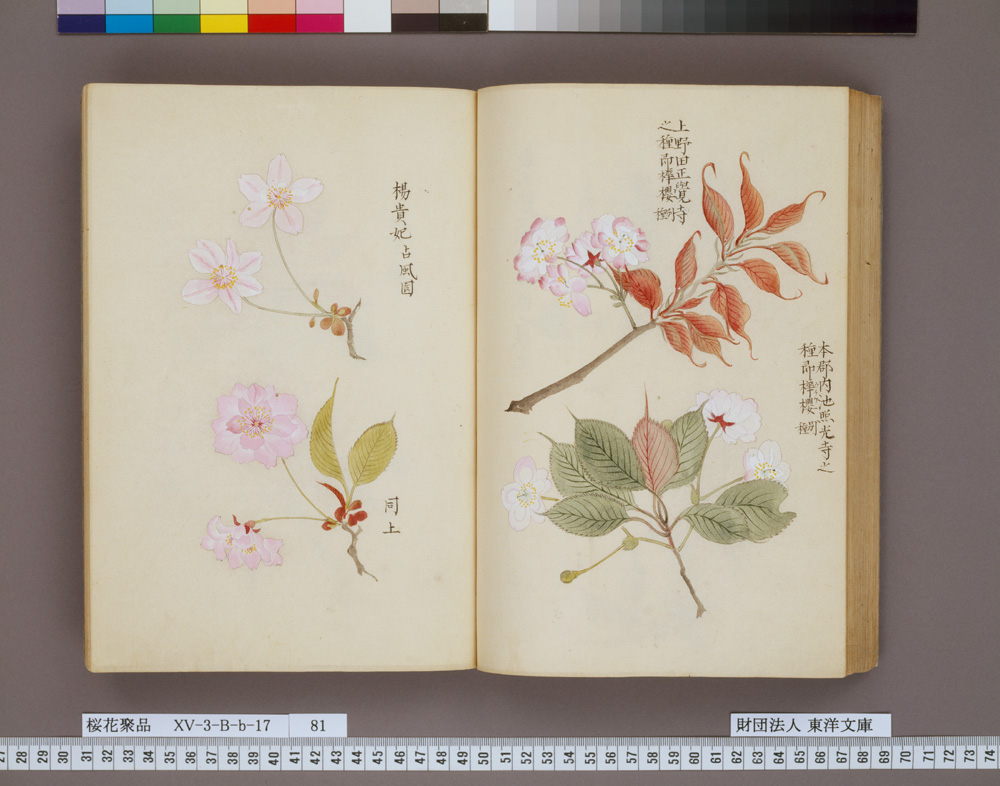 上野田正覺寺
之種即樺櫻 別種
本郡内池照光寺之
種即樺櫻 別種
楊貴妃占風園
同上
桜花聚品 XV-3-B-b-17 81
財団法人 東洋文庫
27 28 29 30 31 32 33 34 35 36 37 38 39 40 41 42 43 44 45 46 47 48 49 50 51 52 53 54 55 56 57 58 59 60 61 62 63 64 65 66 67 68 69 70 71 72 73 74